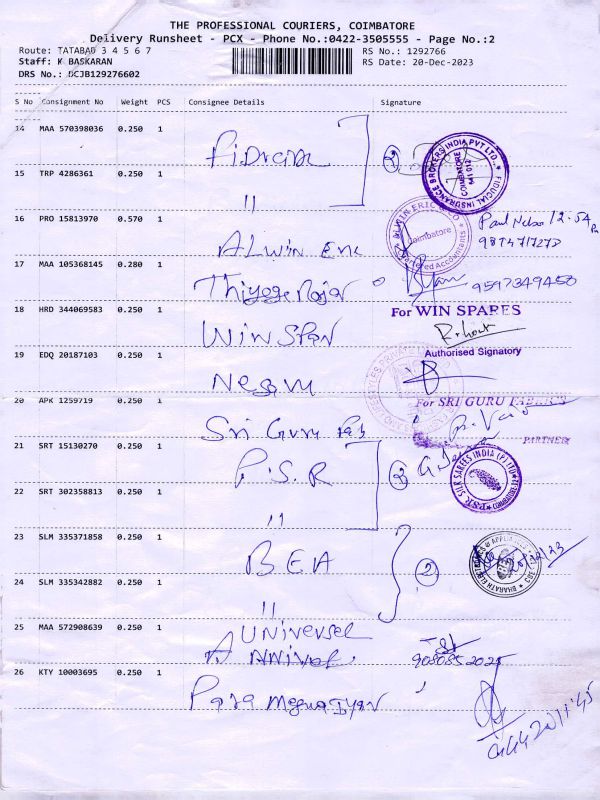 THE PROFESSIONAL COURIERS, COIMBATORE
Delivery Runsheet - PCX - Phone No.:0422-3505555 - Page No.:2
Route: TATABAD 3 4 5 6 7
RS No.: 1292766
Staff: K BASKARAN
RS Date: 20-Dec-2023
DRS No.: DCJB129276602
S No Consignment No Weight PCS Consignee Details Signature
14 MAA 570398036 0.250 1
15 TRP 4286361 0.250 1
"
FIDUCIAL INSURANCE BROKERS INDIA PVT LTD.,
COIMBATORE
641 012
16 PRO 15813970 0.570 1 ALWIN Eric
Coimbatore
Paul Nelso 12-54 Pm
17 MAA 105368145 0.280 1 Thiyage Rajar 9597349450
18 HRD 344069583 0.250 1 WIN SPar
For WIN SPARES
Authorised Signatory
19 EDQ 20187103 0.250 1
20 APK 1259719 0.250 1 Sri Guru Fab
For SRI GURU FABRICS
PARTNER
21 SRT 15130270 0.250 1 P.S.R
2
22 SRT 302358813 0.250 1 "
PSR SILK SAREES INDIA (P) LTD
23 SLM 335371858 0.250 1 BEA
2
24 SLM 335342882 0.250 1 "
25 MAA 572908639 0.250 1 UNIVERSEL
9080852025
26 KTY 10003695 0.250 1